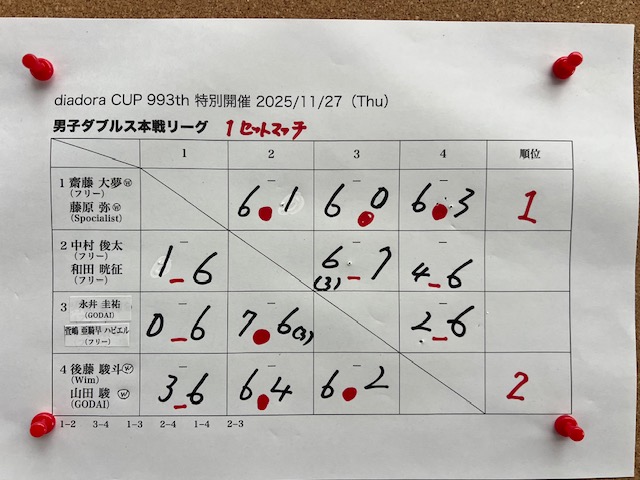 diadora CUP 993th 特別開催 2025/11/27（Thu）
男子ダブルス本戦リーグ 1セットマッチ
1 2 3 4 順位
1 齋藤 大夢 Ⓦ
（フリー）
藤原 弥 Ⓦ
(Spocialist)
6 1 6 0 6 3 1
2 中村 俊太
（フリー）
和田 晄征
（フリー）
1 - 6 6(3) - 7 4 - 6
3 永井 圭祐
(GODAI)
萱嶋 亜騎早 ハビエル
（フリー）
0 - 6 7 6(3) 2 - 6
4 後藤 駿斗 Ⓦ
(Wim)
山田 駿 Ⓦ
(GODAI)
3 - 6 6 4 6 2 2
1−2 3−4 1−3 2−4 1−4 2−3